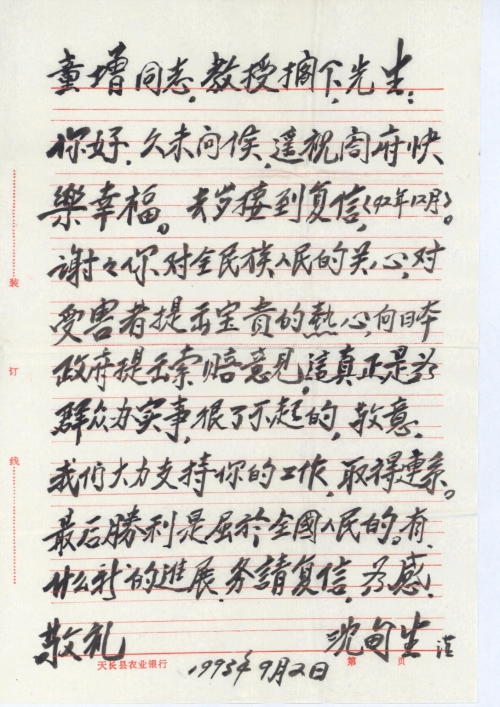 童增同志,教授搁下,先生:
你好.久未问候,遥祝阁府快
樂幸福。去岁接到复信,(92年12月)。
谢々你对全民族人民的关心,对
受害者提出宝貴的熱心,向日本
政府提出索赔意見,這真正是为
群众办实事,很了不起的,敬意.
我们大力支持你的工作,取得連系。
最后勝利是屬於全國人民的.有
什么新的進展.务請复信,为感.
敬礼
沈甸生
1993年9月2日
天长县农业银行
第 页
装
订
线